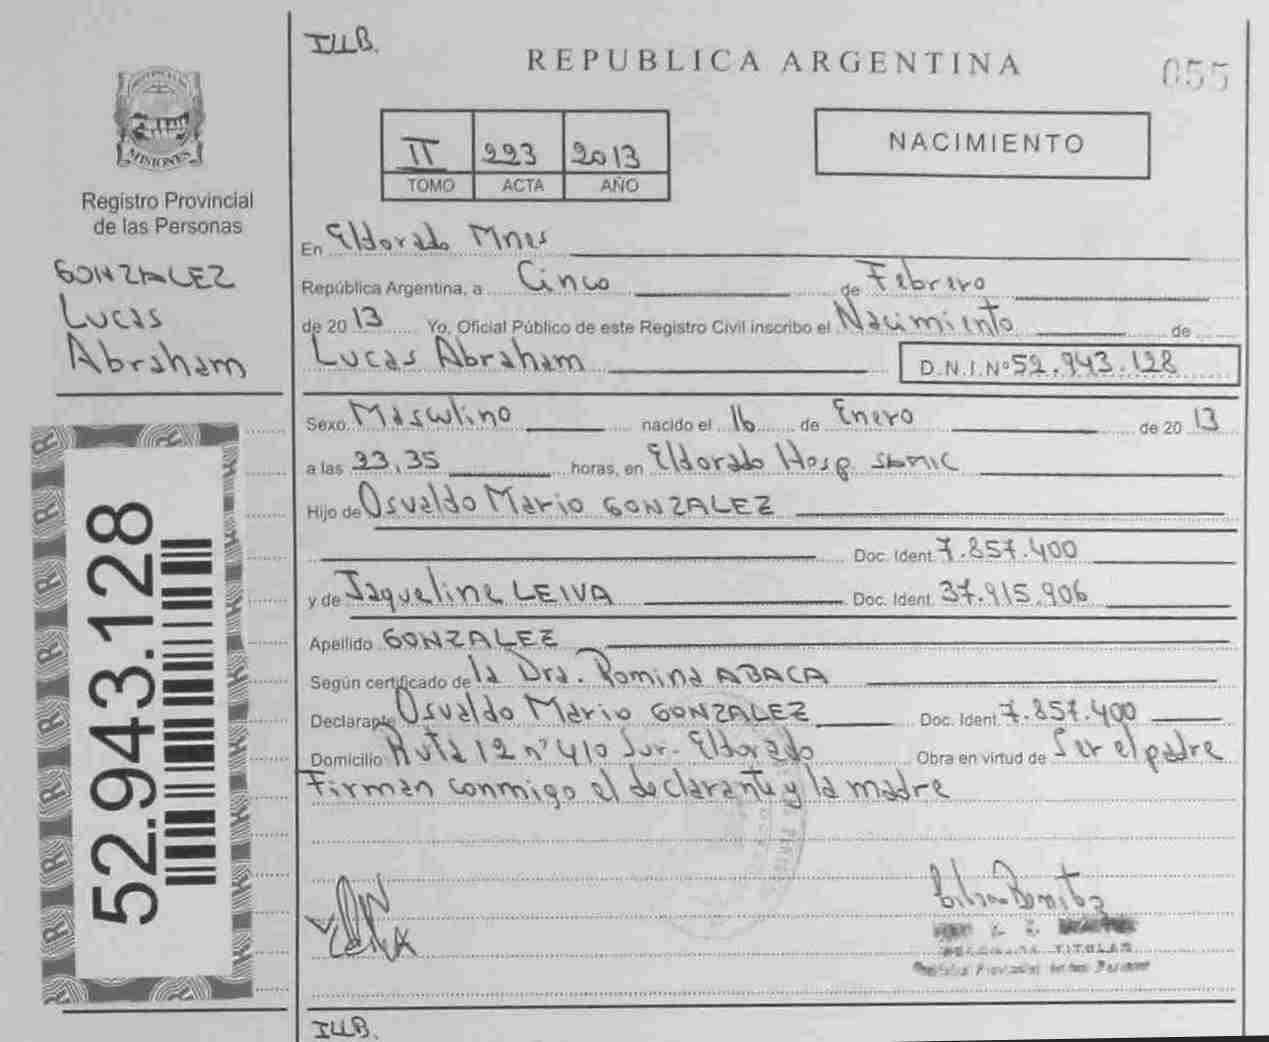 ILLB.
REPUBLICA ARGENTINA
055
MISIONES
II 223 2013
TOMO ACTA AÑO
NACIMIENTO
Registro Provincial
de las Personas
GONZALEZ
Lucas
Abraham
52.943.128
En Eldorado Mnes
República Argentina, a Cinco de Febrero
de 2013 Yo, Oficial Público de este Registro Civil inscribo el Nacimiento de
Lucas Abraham D.N.I.Nº 52.943.128
Sexo Masculino nacido el 16 de Enero de 2013
a las 23,35 horas, en Eldorado Hosp. SAMIC
Hijo de Osvaldo Mario GONZALEZ
Doc. Ident. 7.857.400
y de Jaqueline LEIVA Doc. Ident. 37.915.906
Apellido GONZALEZ
Según certificado de la Dra. Romina ABACA
Declarante Osvaldo Mario GONZALEZ Doc. Ident. 7.857.400
Domicilio Ruta 12 nº 410 Sur- Eldorado Obra en virtud de Ser el padre
Firman conmigo el declarante y la madre
TITULAR
ILLB.